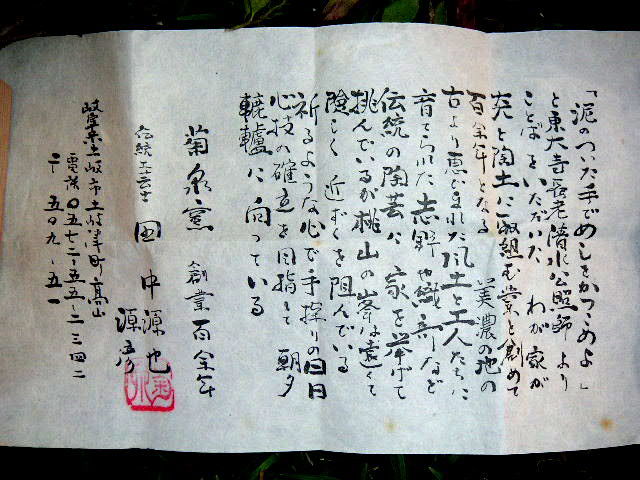 「泥のついた手でめしをかっこめよ」
と東大寺長老清水公照師より
ことばをいただいた わが家が
炎と陶土に取組む業を創めて
百余年となる 美濃の地の
古より恵まれた風土と工人たちに
育てられた志野や織部など
伝統の陶芸に家を挙げて
挑んでいるが桃山の峯は遠くて
険しく近ずくを阻んでいる
祈るような心で手探りの日日
心技の確立を目指して朝夕
轆轤に向っている
菊泉窯 創業百余年
伝統工芸士 田中源也
源彦
岐阜県土岐市土岐津町高山
電話〇五七二-五五-二三四二
〒五〇九-五一